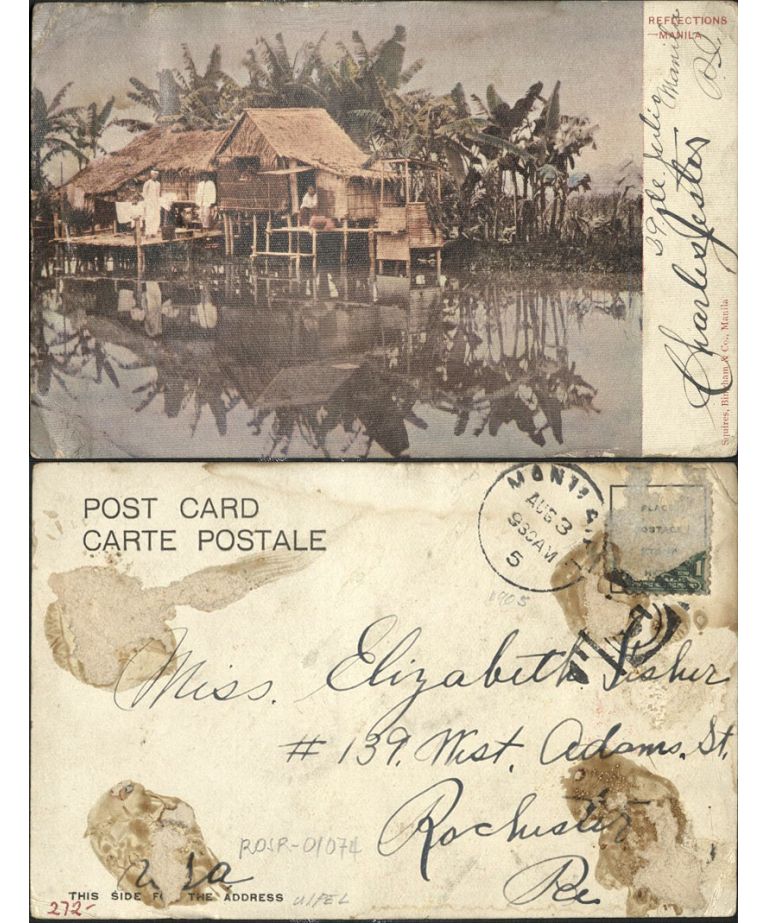 REFLECTIONS
—MANILA
39 de Julio
Manila
P.I.
Charles
Squires, Bingham & Co., Manila
POST CARD
CARTE POSTALE
AUG 3
930AM
5
PLACE
POSTAGE
1905
Miss. Elizabeth Fisher
# 139. West. Adams. St.
Rochester
Pa
U S a
ROJR-01074
THIS SIDE FOR THE ADDRESS
272-